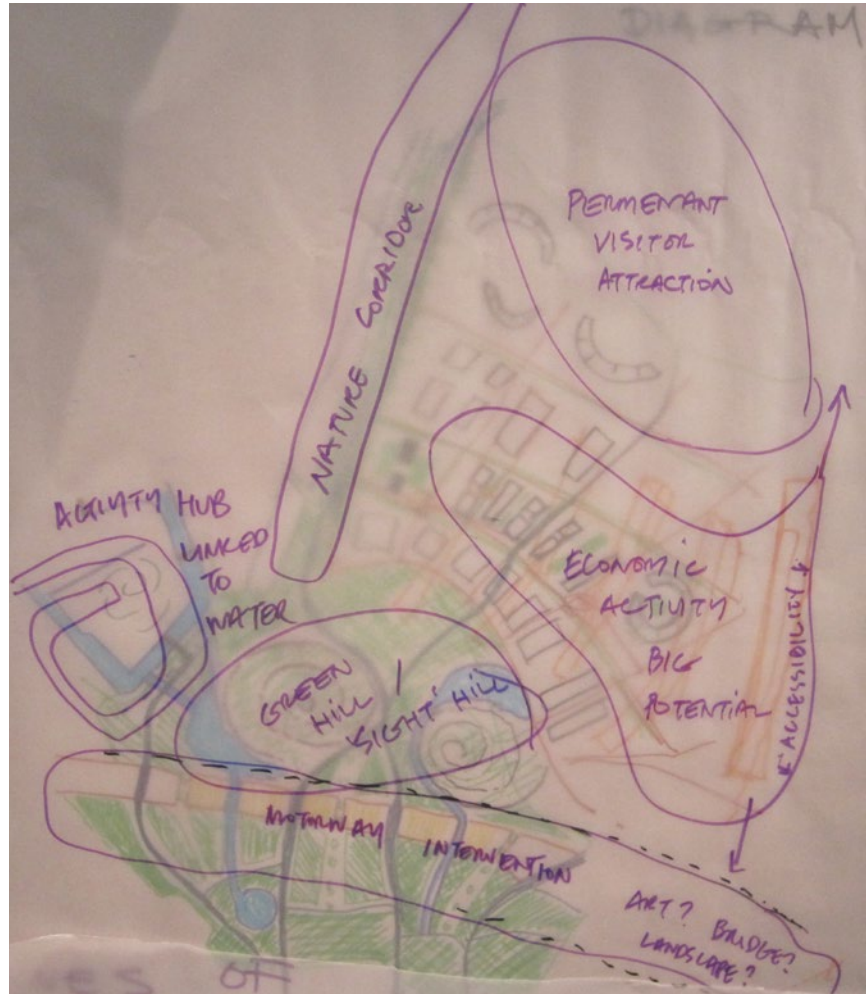 DIAGRAM
PERMENANT
VISITOR
ATTRACTION
NATURE CORRIDOR
ACTIVITY HUB
LINKED
TO
WATER
ECONOMIC
ACTIVITY
BIG
POTENTIAL
ACCESSIBILITY
GREEN
HILL /
'SIGHT' HILL
MOTORWAY INTERVENTION
ART? BRIDGE?
LANDSCAPE?